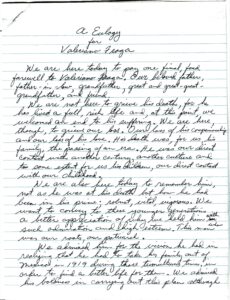 A Eulogy
for
Valeriano
We are here today to pay one final, fond
farewell to Valeriano Our husband, father,
father-in-law, grandfather, great and great-great-
grandfather, and friend.
We are not here to grieve his death, for he
has lived a full, rich life and, at this point, we
welcomed an end to his suffering. We are here
though, to grieve our loss. Our loss of his companionship
and our loss of his love. His death was, for us his
family, the passing of an era. He was our direct
contact with another century, another culture and
to some extent, for us his children, our direct contact
with our childhood.
We are also here today to remember him,
not as he was at his death but how he had
been in his prime; robust, vital, vigorous. We
want to convey to these younger generations
a better appreciation of why we held him with
such admiration and high esteem. This man
was our roots, our patriarch.
We admired him for the vision he had in
realizing that he had to take his family out of
Mexico in 1919 during those turbulent times, in
order to find a better life for them. We admired
his boldness in carrying out this plan although